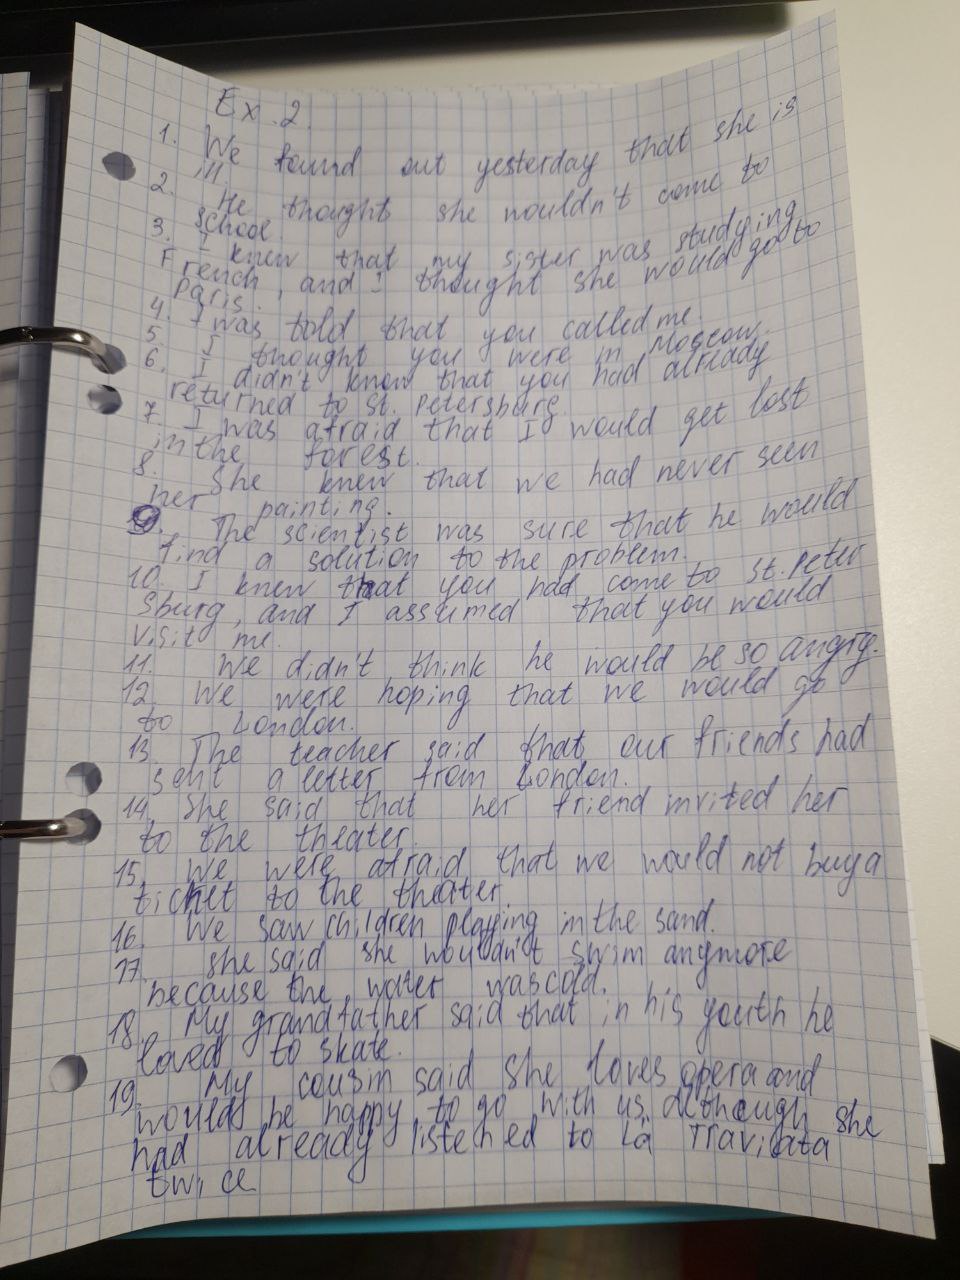 Ex. 2.
1. We found out yesterday that she is
ill.
2. He thought she wouldn't come to
school.
3. I knew that my sister was studying
French, and I thought she would go to
Paris.
4. I was told that you called me.
5. I thought you were in Moscow.
6. I didn't know that you had already
returned to St. Petersburg.
7. I was afraid that I would get lost
in the forest.
8. She knew that we had never seen
her painting.
9. The scientist was sure that he would
find a solution to the problem.
10. I knew that you had come to St. Peter
sburg, and I assumed that you would
visit me.
11. We didn't think he would be so angry.
12. We were hoping that we would go
to London.
13. The teacher said that our friends had
sent a letter from London.
14. She said that her friend invited her
to the theater.
15. We were afraid that we would not buy a
ticket to the theater.
16. We saw children playing in the sand.
17. She said she wouldn't swim anymore
because the water was cold.
18. My grandfather said that in his youth he
loved to skate.
19. My cousin said she loves opera and
would be happy to go with us, although she
had already listened to La Traviata
twice